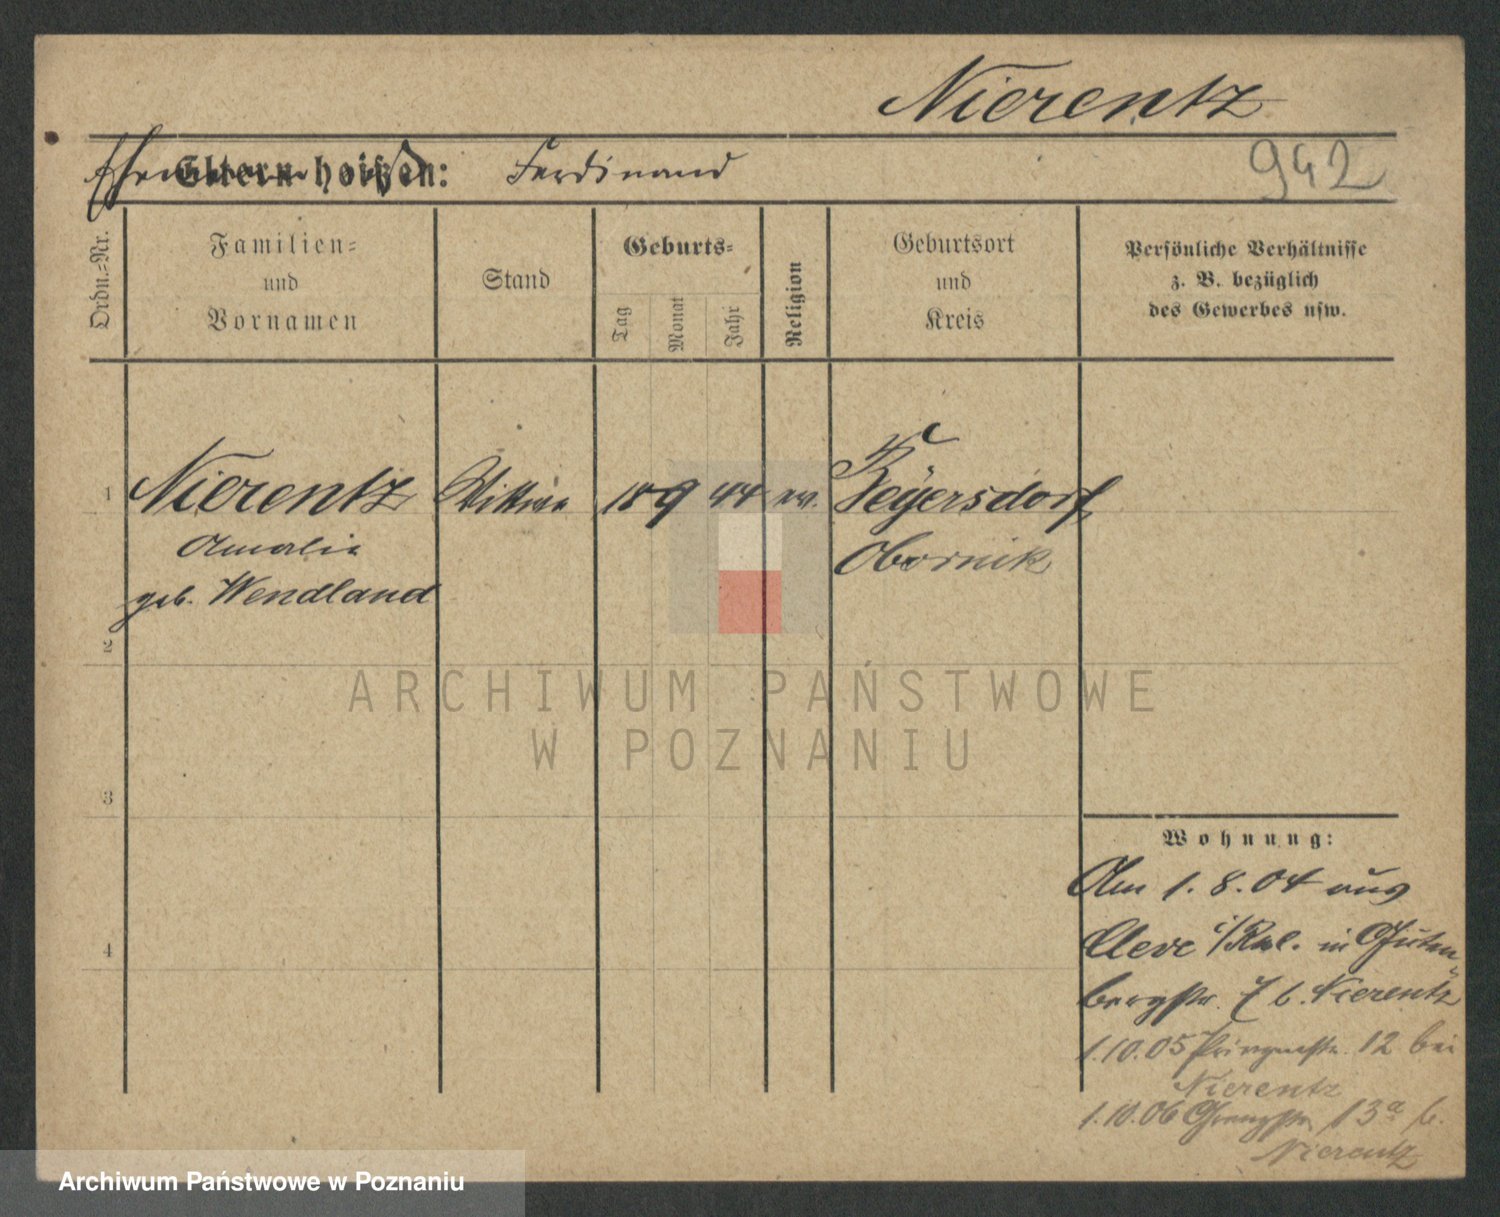 Nierentz
942
Eltern heißen: Ferdinand
Ordn.=Nr.
Familien=
und
Vornamen
Stand
Geburts=
Tag
Monat
Jahr
Religion
Geburtsort
und
Kreis
Persönliche Verhältnisse
z. B. bezüglich
des Gewerbes usw.
1 Nierentz Wittwe 18 9 44 ev. Beyersdorf
Amalie Obornik
geb. Wendland
2
3
4
Wohnung:
Am 1. 8. 04 aus
Cleve i/Rhl. in Guten
bergstr. 7 b. Nierentz
1.10.05 Prinzenstr. 12 bei
Nierentz
1.10.06 Grenzstr. 13a b.
Nierentz
ARCHIWUM PAŃSTWOWE
W POZNANIU
Archiwum Państwowe w Poznaniu